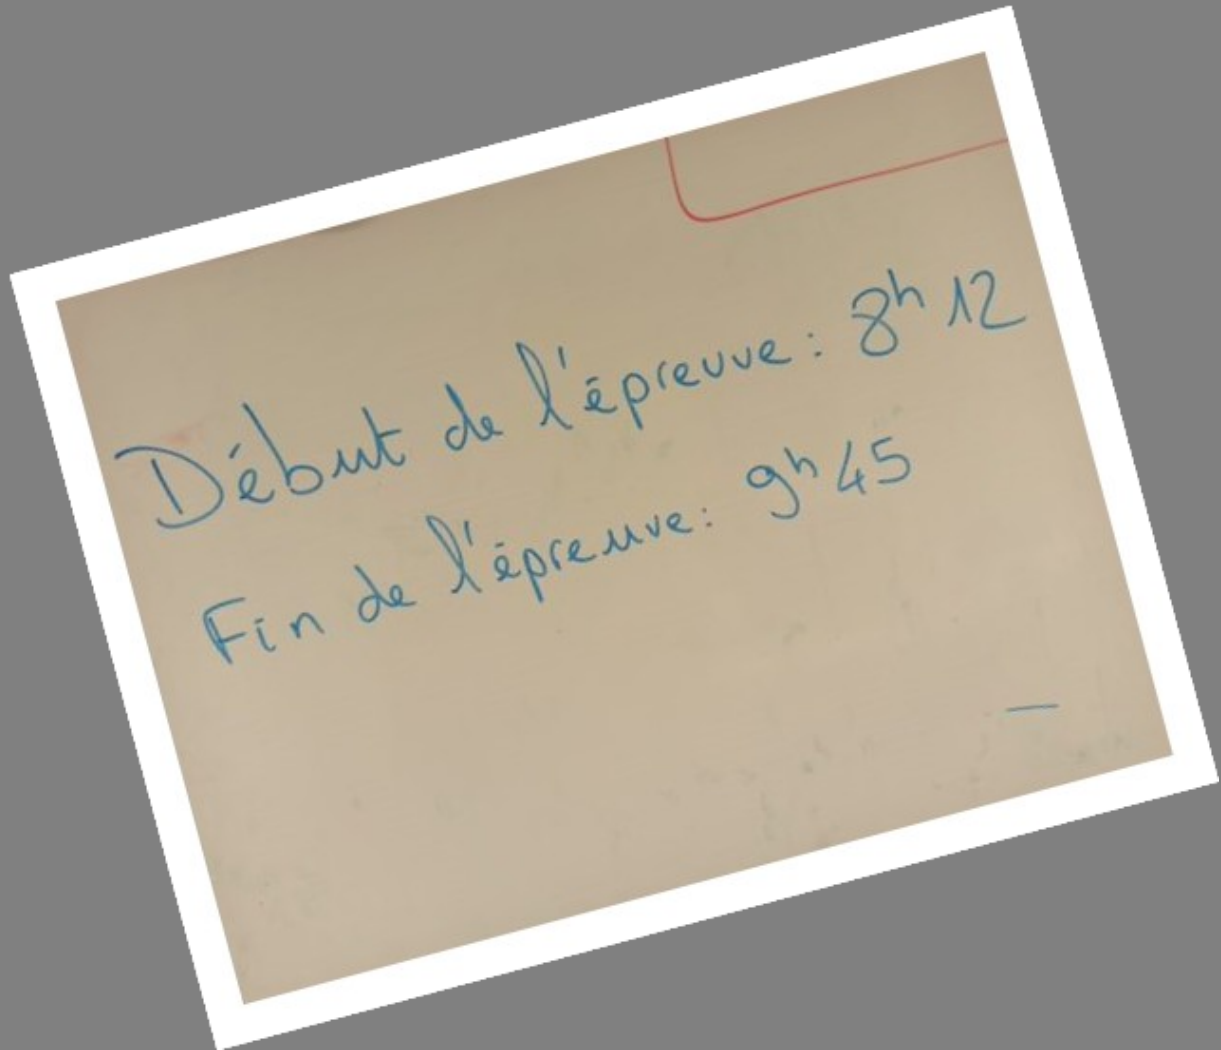 Début de l'épreuve : 8h 12
Fin de l'épreuve : 9h 45